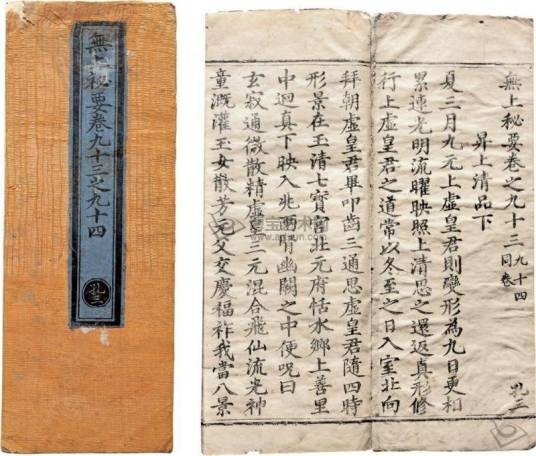 無上秘要卷九十三之九十四
孔三
無上秘要卷之九十三
九十四
同卷
孔三
昇上清品下
夏三月九元上虛皇君則變形為九日更相
累連光明流曜映照上清思之還返真形修
行上虛皇君之道常以冬至之日入室北向
拜朝虛皇君畢叩齒三通思虛皇君隨四時
形景在玉清七寶宮北元府恬水鄉上善里
中迴真下映入兆兩腎幽關之中便呪曰
玄寂通微散精虛皇三元混合飛仙流光神
童溉灌玉女散芳元父交慶福祚我當八景